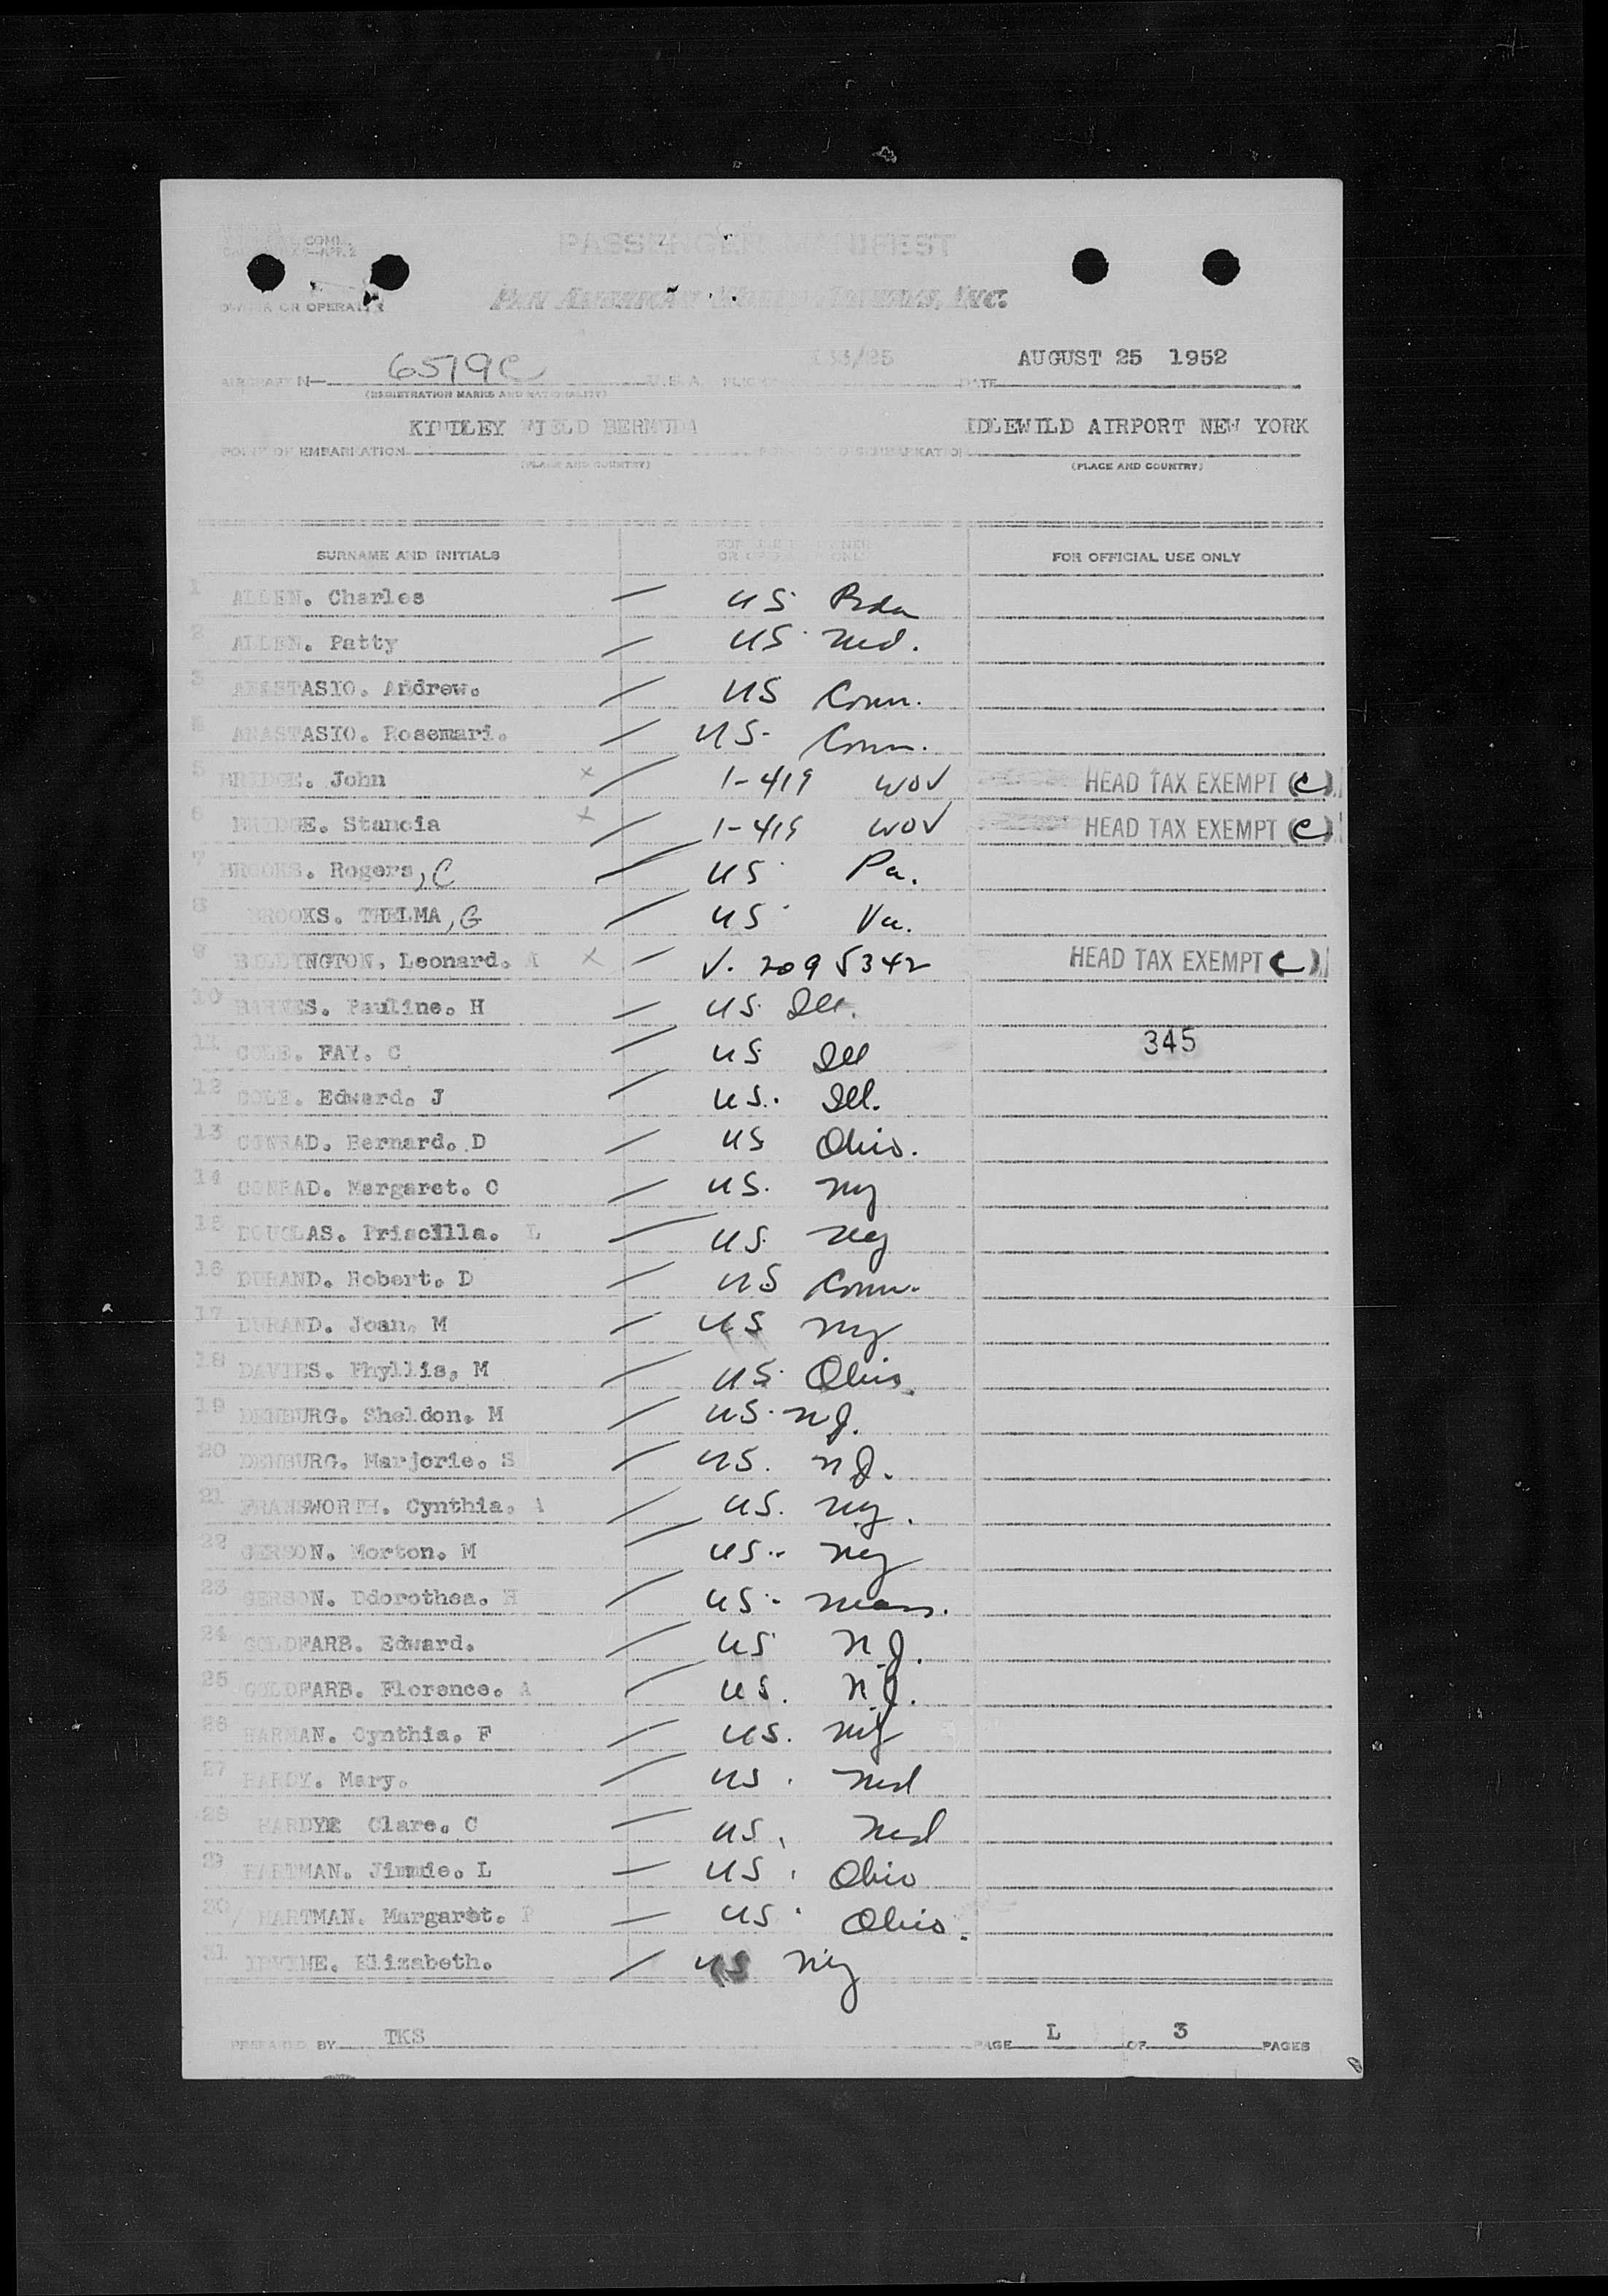 COMM.
—APR. 2
PASSENGER MANIFEST
OWNER OR OPERATOR
PAN AMERICAN WORLD AIRWAYS, INC.
AIRCRAFT N— 6519C U.S.A. FLIGHT 133/25 DATE AUGUST 25 1952
(REGISTRATION MARKS AND NATIONALITY)
POINT OF EMBARKATION KINDLEY FIELD BERMUDA POINT OF DISEMBARKATION IDLEWILD AIRPORT NEW YORK
(PLACE AND COUNTRY) (PLACE AND COUNTRY)
SURNAME AND INITIALS FOR USE BY OWNER OR OPERATOR ONLY FOR OFFICIAL USE ONLY
1 ALLEN. Charles — US Bda
2 ALLEN. Patty — US Md.
3 ANASTASIO. Andrew. — US Conn.
4 ANASTASIO. Rosemari. — US- Conn.
5 BRIDGE. John x — 1-419 WOV HEAD TAX EXEMPT (C)
6 BRIDGE. Stancia x — 1-419 WOV HEAD TAX EXEMPT (C)
7 BROOKS. Rogers, C — US Pa.
8 BROOKS. THELMA, G — US Va.
9 Leonard. A x — V. 2095342 HEAD TAX EXEMPT (C)
10 BARNES. Pauline. H — US Ill.
11 COLE. FAY. C — US Ill 345
12 COLE. Edward. J — US. Ill.
13 CONRAD. Bernard. D — US Ohio.
14 CONRAD. Margaret. C — US. NY
15 DOUGLAS. Priscilla. L — US NY
16 DURAND. Robert. D — US Conn.
17 DURAND. Joan. M — US NY
18 DAVIES. Phyllis, M — US Ohio.
19 DENBURG. Sheldon. M — US. NJ.
20 DENBURG. Marjorie. S — US. NJ.
21 FRANSWORTH. Cynthia. A — US. NY.
22 GERSON. Morton. M — US.. NY
23 GERSON. Ddorothea. H — US- Mass.
24 GOLDFARB. Edward. — US N.J.
25 GOLDFARB. Florence. A — US. N.J.
26 HARMAN. Cynthia. F — US. NY
27 HARDY. Mary. — US. Md
28 HARDYE Clare. C — US. Md
29 HARTMAN. Jimmie. L — US. Ohio
30/ HARTMAN. Margaret. P — US. Ohio.
31 IRVINE. Elizabeth. — US NY
PREPARED BY TKS PAGE L OF 3 PAGES